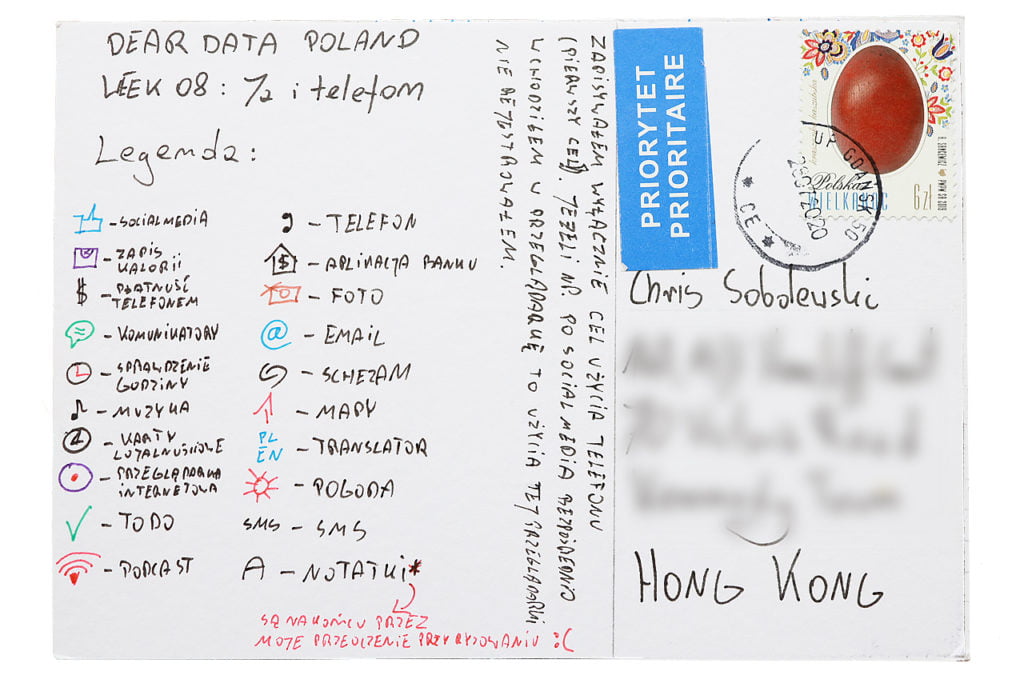 DEAR DATA POLAND
WEEK 08: Ja i telefon
Legenda:
- SOCIALMEDIA
- ZAPIS
KALORII
$ - PŁATNOŚĆ
TELEFONEM
- KOMUNIKATORY
- SPRAWDZENIE
GODZINY
- MUZYKA
- KARTY
LOJALNOŚCIOWE
- PRZEGLĄDARKA
INTERNETOWA
- TODO
- PODCAST
- TELEFON
$ - APLIKACJA BANKU
- FOTO
@ - EMAIL
- SCHEZAM
- MAPY
PL
EN - TRANSLATOR
- POGODA
SMS - SMS
A - NOTATKI*
SĄ NA KOŃCU PRZEZ
MOJE PRZEOCZENIE PRZY RYSOWANIU :(
ZAPISYWAŁEM WYŁĄCZNIE CEL UŻYCIA TELEFONU
(PIERWSZY CEL). JEŻELI NP. PO SOCIAL MEDIA BEZPOŚREDNIO
WCHODZIŁEM W PRZEGLĄDARKĘ TO UŻYCIA TEJ PRZEGLĄDARKI
NIE REJESTROWAŁEM.
PRIORYTET
PRIORITAIRE
Polska
WIELKANOC
6 zł
UP GDAŃSK 50
2020
CE
Chris Sobolewski
HONG KONG